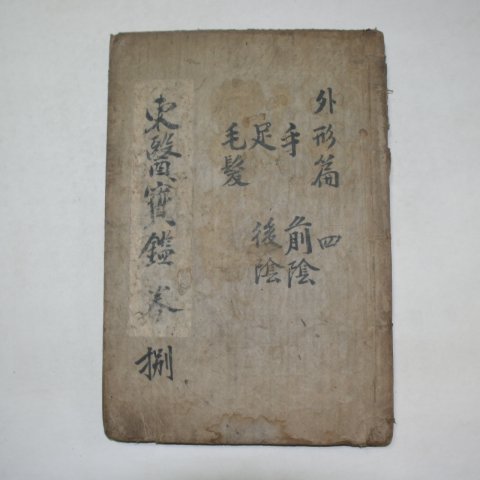 外形篇 四
手 前陰
足 後陰
毛髮
東醫寶鑑 卷
捌